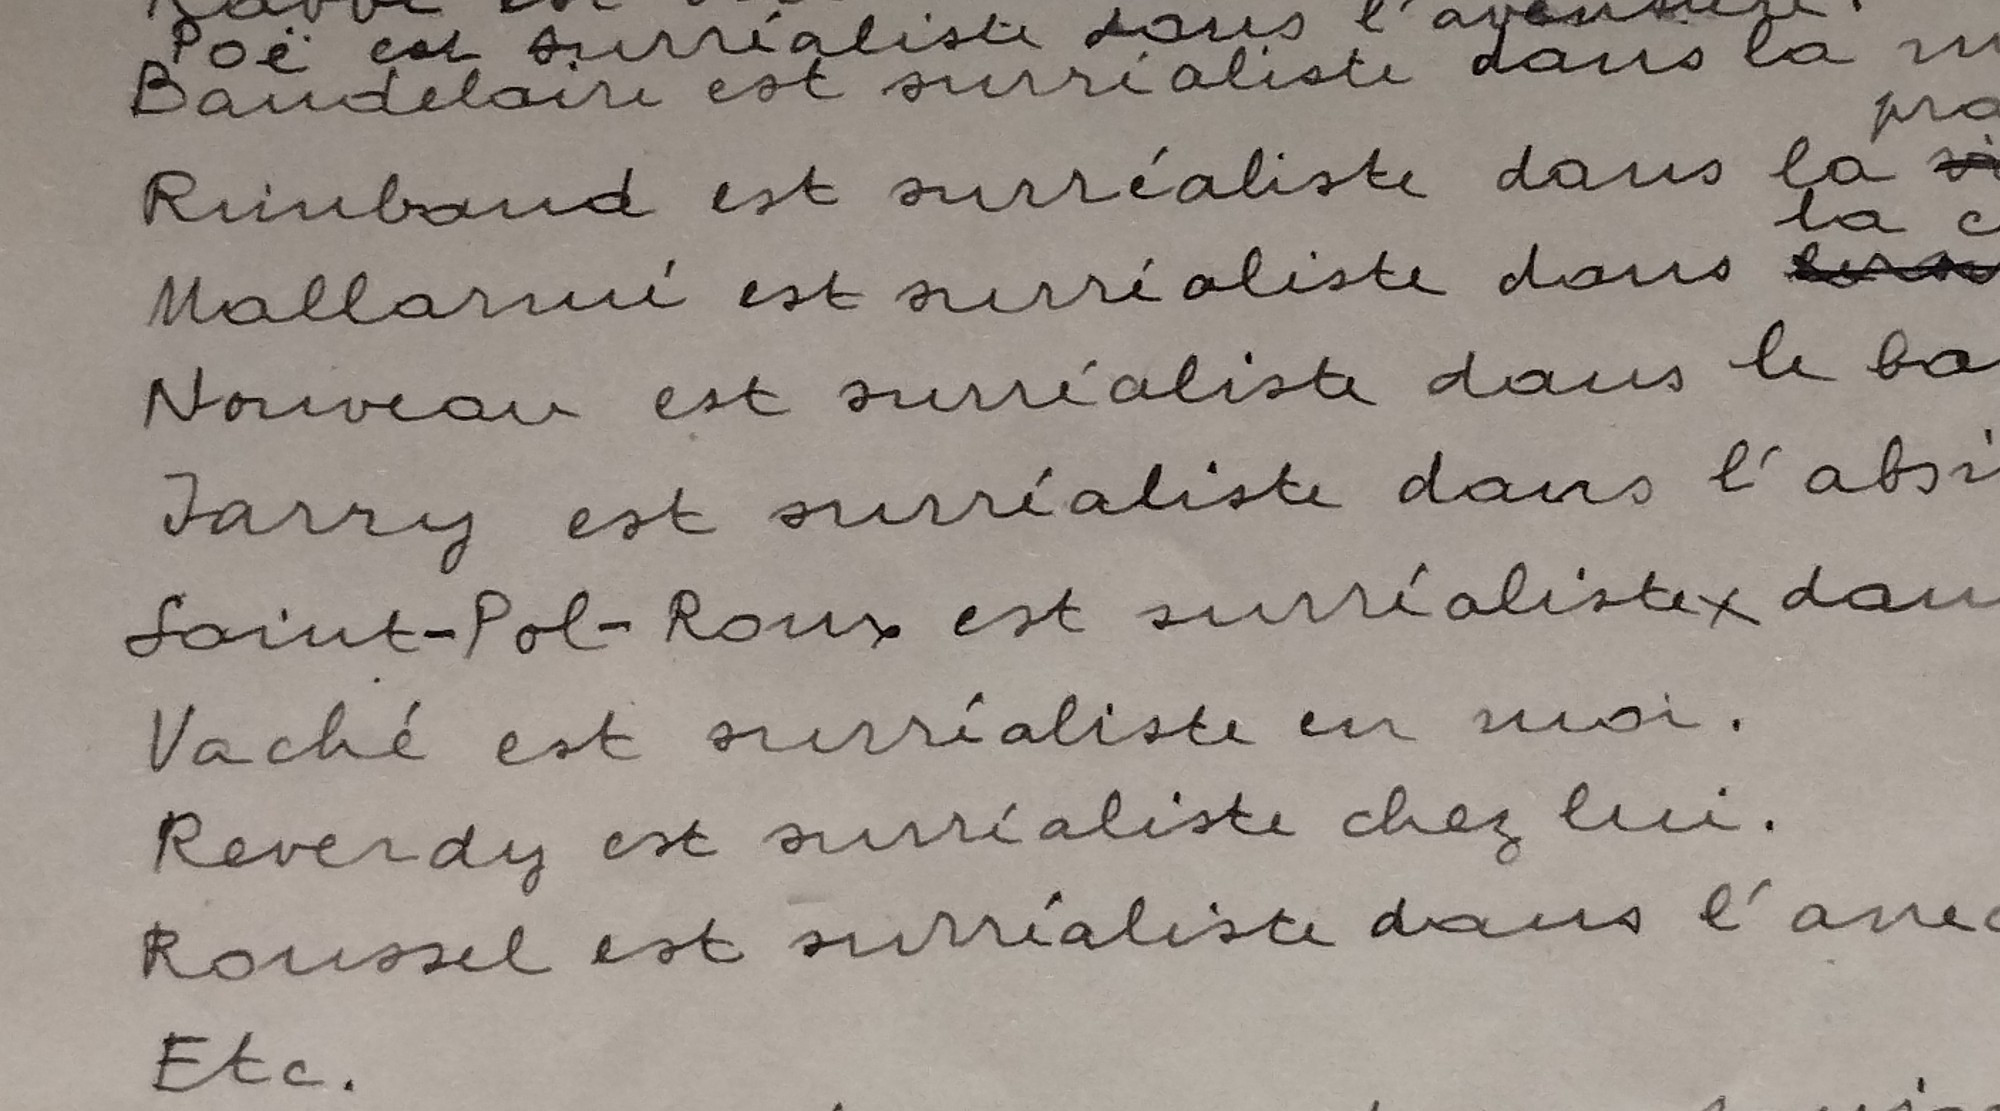 Rabbe est
Poë est surréaliste dans l'aventure.
Baudelaire est surréaliste dans la
pra
Rimbaud est surréaliste dans la
la c
Mallarmé est surréaliste dans
Nouveau est surréaliste dans le ba
Jarry est surréaliste dans l'absi
Saint-Pol-Roux est surréalistex dan
Vaché est surréaliste en moi.
Reverdy est surréaliste chez lui.
Roussel est surréaliste dans l'anec
Etc.